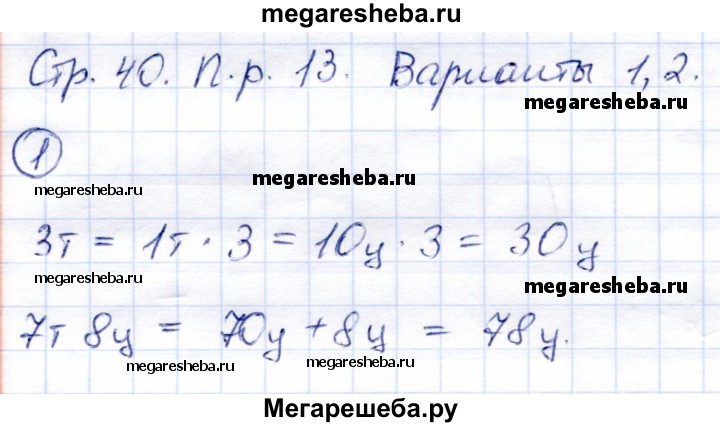 megaresheba.ru
Стр. 40. П.р. 13. Варианты 1, 2.
megaresheba.ru
1
megaresheba.ru
megaresheba.ru
3т = 1т · 3 = 10ц · 3 = 30ц
megaresheba.ru
megaresheba.ru
7т 8ц = 70ц + 8ц = 78ц.
megaresheba.ru
megaresheba.ru
Мегарешеба.ру